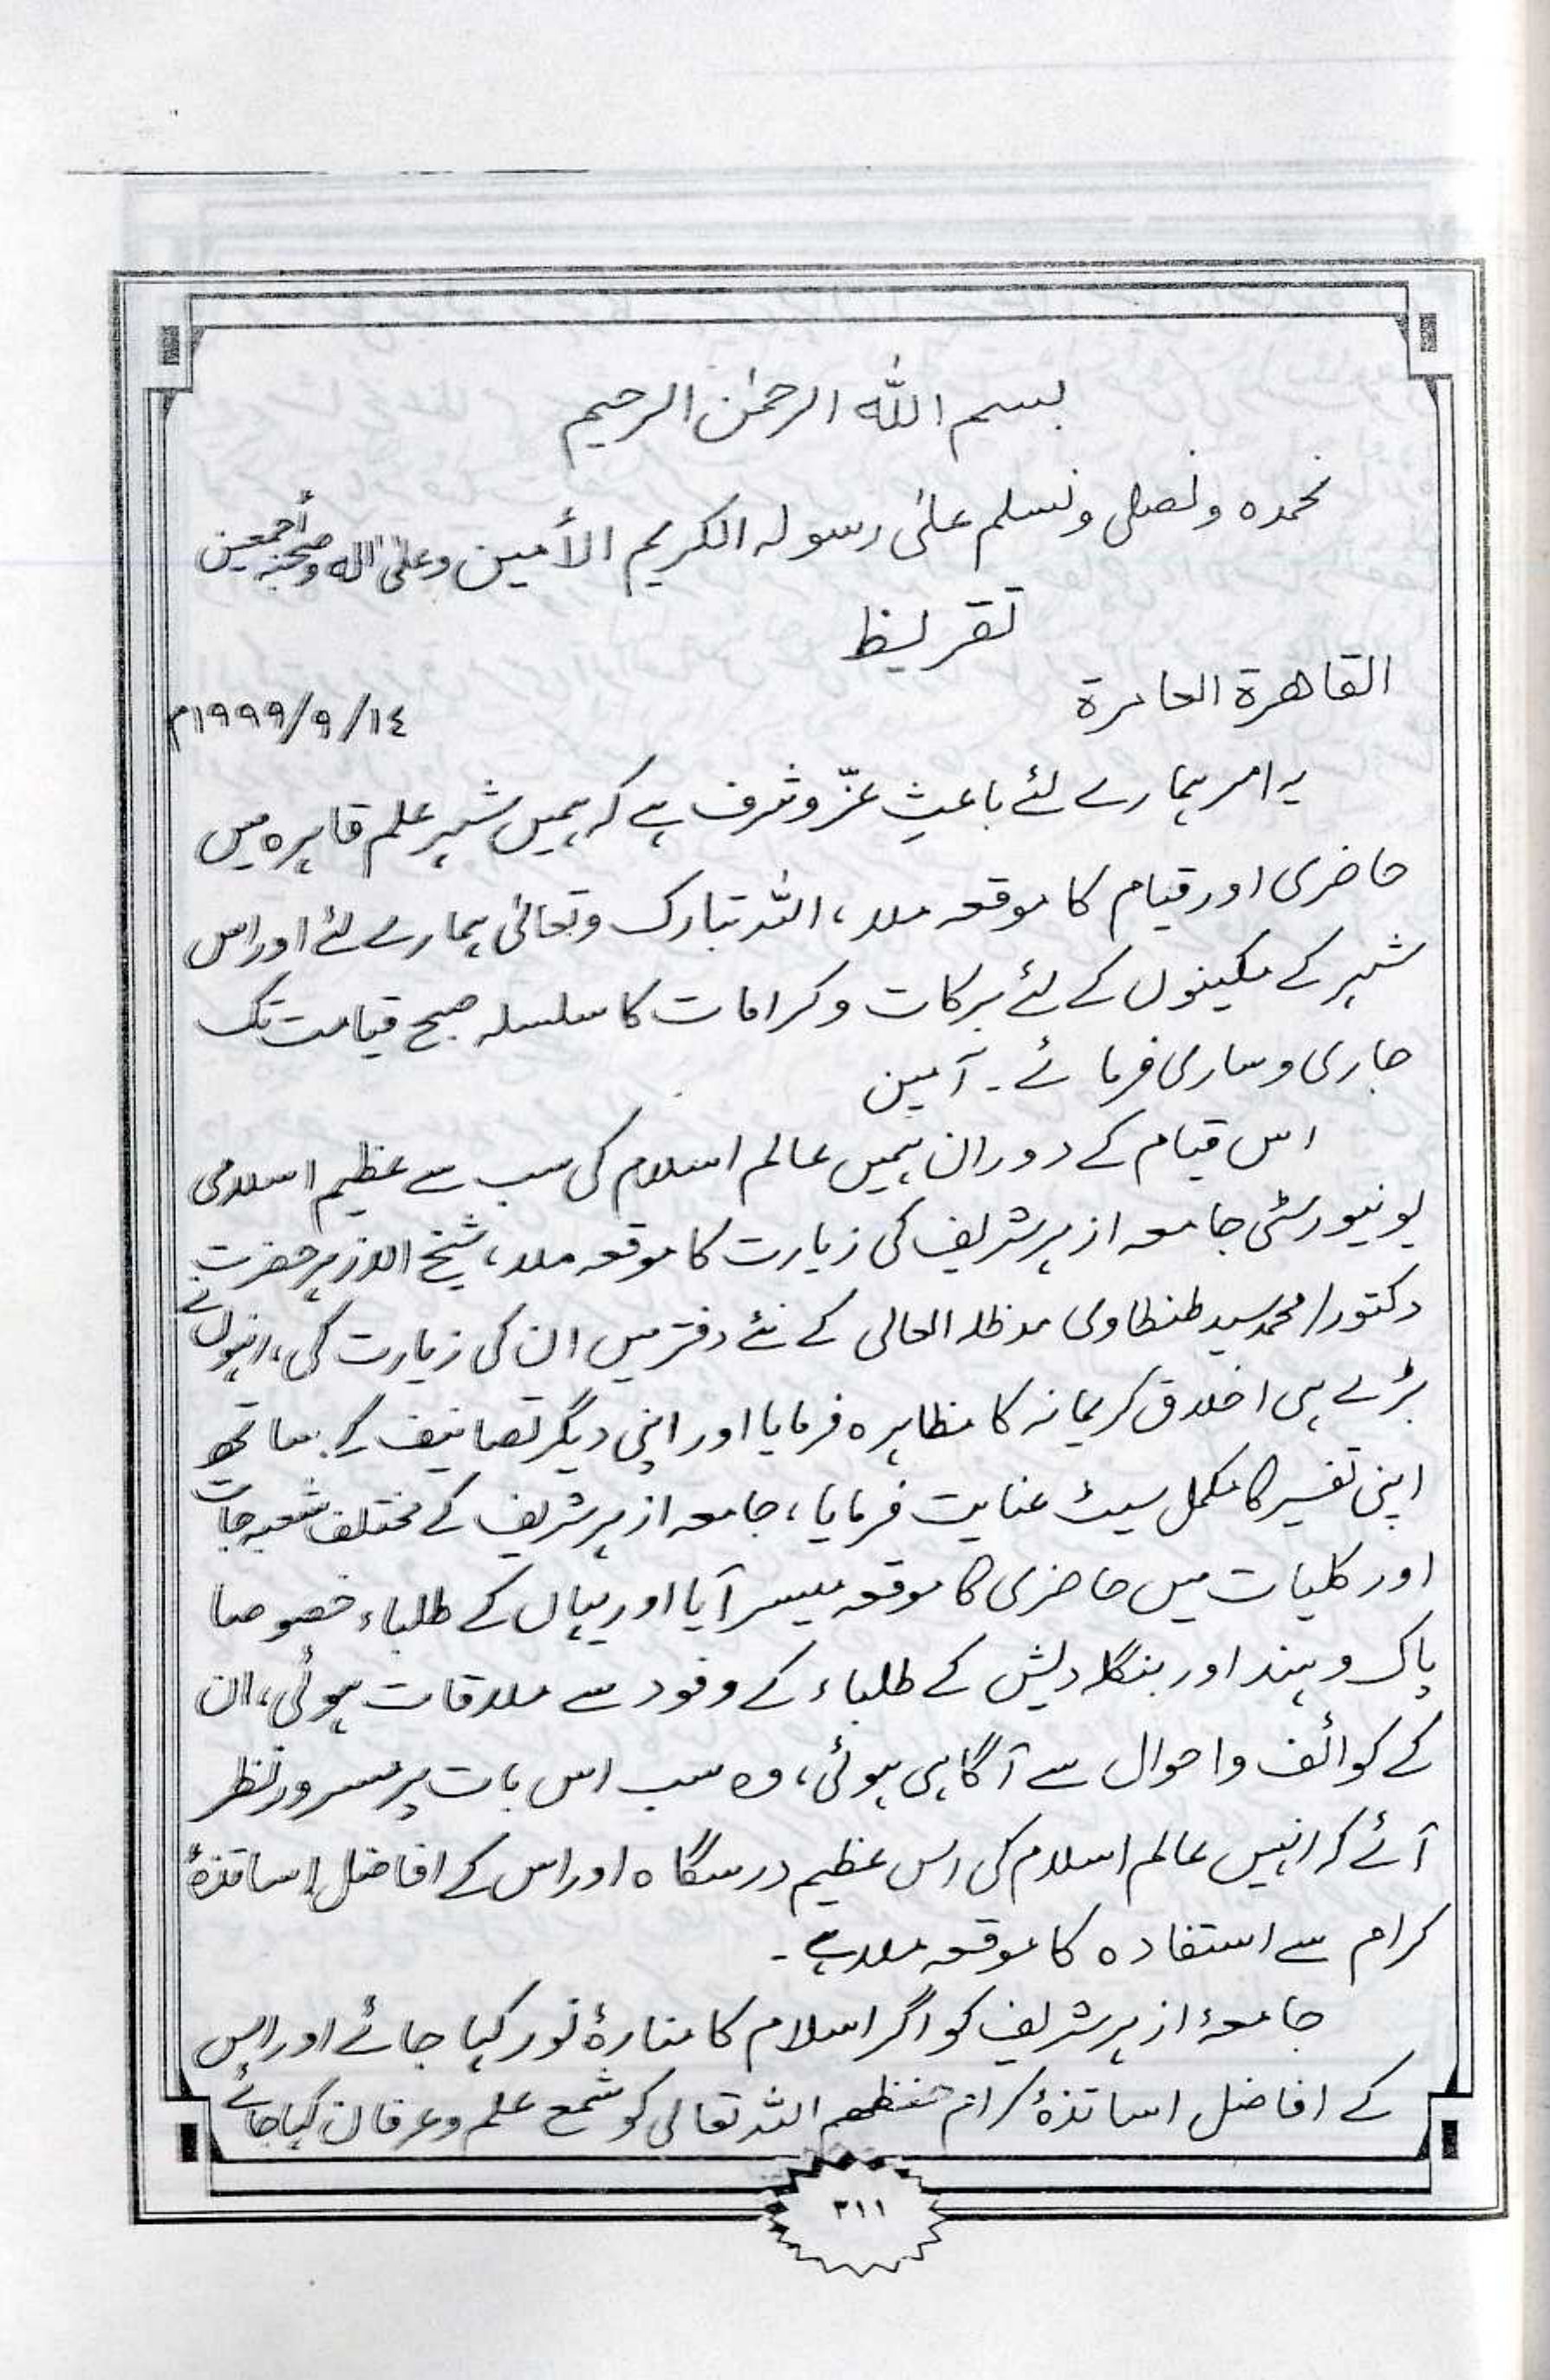 بسم اللہ الرحمٰن الرحیم
نحمدہ ونصلی ونسلم علیٰ رسولہ الکریم الأمین وعلیٰ آلہ وصحبہ أجمعین
تقریظ
القاھرۃ العامرۃ
١٤/٩/١٩٩٩م
یہ امر ہمارے لئے باعثِ عزّ وشرف ہے کہ ہمیں شہر علم قاہرہ میں
حاضری اور قیام کا موقعہ ملا، اللہ تبارک وتعالیٰ ہمارے لئے اور اس
شہر کے مکینوں کے لئے برکات وکرامات کا سلسلہ صبح قیامت تک
جاری وساری فرمائے۔ آمین
اس قیام کے دوران ہمیں عالم اسلام کی سب سے عظیم اسلامی
یونیورسٹی جامعہ ازہر شریف کی زیارت کا موقعہ ملا، شیخ الازہر حضرت
دکتور/محمد سید طنطاوی مدظلہ العالی کے نئے دفتر میں ان کی زیارت کی، انہوں نے
بڑے ہی اخلاق کریمانہ کا مظاہرہ فرمایا اور اپنی دیگر تصانیف کے ساتھ
اپنی تفسیر کا مکمل سیٹ عنایت فرمایا، جامعہ ازہر شریف کے مختلف شعبہ جات
اور کلیات میں حاضری کا موقعہ میسر آیا اور یہاں کے طلباء خصوصا
پاک وہند اور بنگلہ دیش کے طلباء کے وفود سے ملاقات ہوئی، ان
کے کوائف واحوال سے آگاہی ہوئی، وہ سب اس بات پر مسرور نظر
آئے کہ انہیں عالم اسلام کی اس عظیم درسگاہ اور اس کے افاضل اساتذۂ
کرام سے استفادہ کا موقعہ ملا ہے۔
جامعۂ ازہر شریف کو اگر اسلام کا منارۂ نور کہا جائے اور اس
کے افاضل اساتذۂ کرام حفظھم اللہ تعالی کو شمع علم وعرفان کہا جائے
٣١١